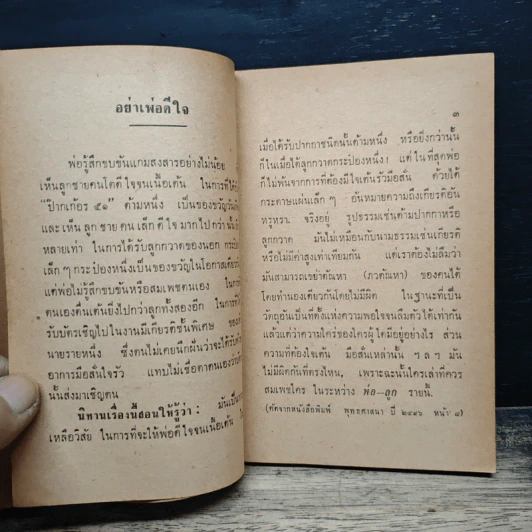 อย่าเพ่อดีใจ
พ่อรู้สึกขบขันแกมสงสารอย่างไม่น้อย
เห็นลูกชายคนโตดีใจจนเนื้อเต้น ในการที่ได้
"ป๊ากเก้อร ๕๑" ด้ามหนึ่ง เป็นของขวัญวัน
และเห็นลูกชายคนเล็กดีใจมากไปกว่านั้น
หลายเท่า ในการได้รับลูกกวาดของนอก กระป๋อง
เล็กๆ กระป๋องหนึ่งเป็นของขวัญในโอกาสเดียว
แต่พ่อไม่รู้สึกขบขันหรือสมเพชตนเอง ในการ
ตนเองตื่นเต้นยิ่งไปกว่าลูกทั้งสองอีก ในการที่
รับบัตรเชิญไปในงานมีเกียรติชั้นพิเศษ ของ
นายรายหนึ่ง ซึ่งตนไม่เคยนึกฝันว่าจะได้รับ
อาการมือสั่นใจรัว แทบไม่เชื่อตาตนเองว่า
นั้นส่งมาเชิญตน
นิทานเรื่องนี้สอนให้รู้ว่า : มันเป็น
เหลือวิสัย ในการที่จะให้พ่อดีใจจนเนื้อเต้น
๓
เมื่อได้รับปากกาชนิดนั้นด้ามหนึ่ง หรือยิ่งกว่านั้น
ก็ในเมื่อได้ลูกกวาดกระป๋องหนึ่ง! แต่ในที่สุดพ่อ
ก็ไม่พ้นจากการที่ต้องมีใจเต้นรัวมือสั่น ด้วยได้
กระดาษแผ่นเล็กๆ อันหมายความถึงเกียรติอัน
หรูหรา. จริงอยู่ รูปธรรมเช่นด้ามปากกาหรือ
ลูกกวาด มันไม่เหมือนกับนามธรรมเช่นเกียรติ
หรือไม่มีค่าสูงเท่าเทียมกัน แต่เราต้องไม่ลืมว่า
มันสามารถเขย่าตัณหา (ภวตัณหา) ของตนได้
โดยทำนองเดียวกันโดยไม่มีผิด ในฐานะที่เป็น
วัตถุอันเป็นที่ตั้งแห่งความพอใจจนลืมตัวได้เท่ากัน
แล้วแต่ว่าความใคร่ของใครผู้ใดมีอยู่อย่างไร ส่วน
ความที่ต้องใจเต้น มือสั่นเหล่านั้น ฯลฯ มัน
ไม่มีผิดกันที่ตรงไหน, เพราะฉะนั้นใครเล่าที่ควร
สมเพชใคร ในระหว่าง พ่อ–ลูก รายนี้.
(คัดจากหนังสือพิมพ์ พุทธศาสนา ปี ๒๔๙๖ หน้า ๘)